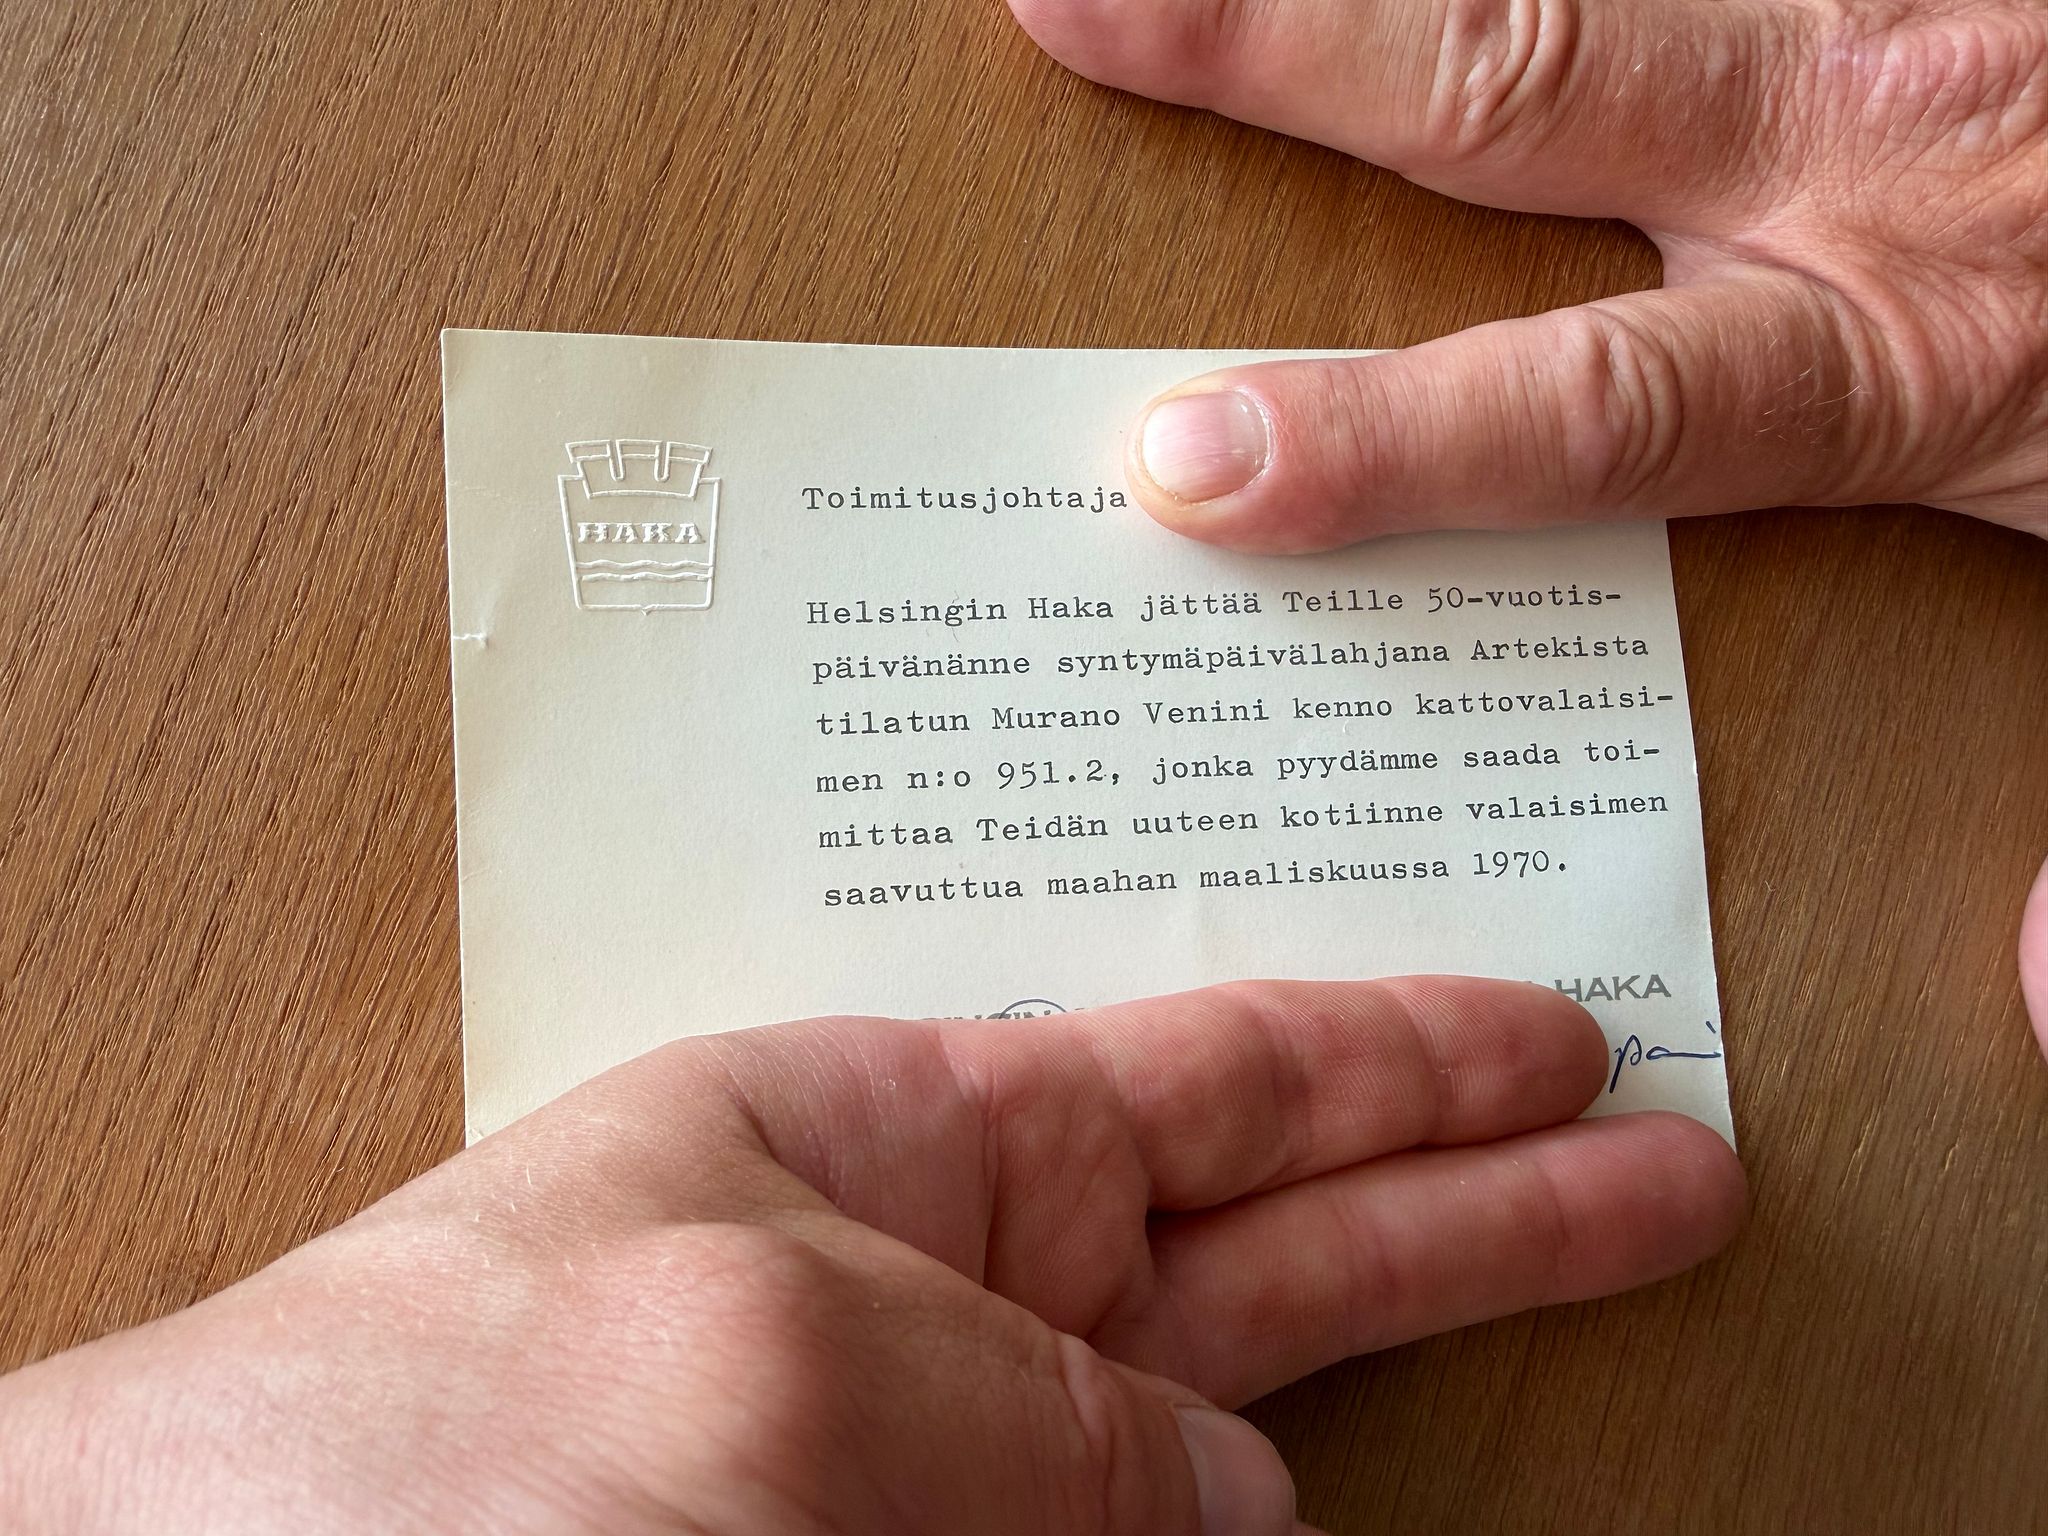 HAKA
Toimitusjohtaja
Helsingin Haka jättää Teille 50-vuotis-
päivänänne syntymäpäivälahjana Artekista
tilatun Murano Venini kenno kattovalaisi-
men n:o 951.2, jonka pyydämme saada toi-
mittaa Teidän uuteen kotiinne valaisimen
saavuttua maahan maaliskuussa 1970.
HAKA